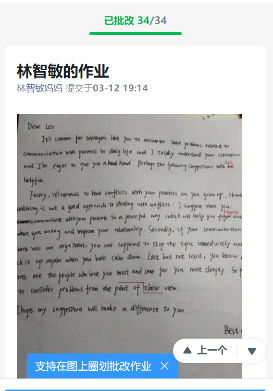 已批改 34/34
林智敏的作业
林智敏妈妈 提交于03-12 19:14
Dear Leo
It's common for teenagers like you to encounter some problems related to
communication with parents in daily life and I totally understand your
and I'm eager to give you a hand. Perhaps the following suggestions will be
helpful.
Firstly, it's normal to have conflicts with your parents as you grow up.
is not a good approach to dealing with conflicts. I suggest that you
communicate with your parent in a peaceful way, which will help you figure out
what goes wrong and improve your relationship. Secondly, if your communication
turns into an argument, you are supposed to stop the topic immediately and
it up again when you both calm down. Last but not least, you know
are the people who love you most and care for you most deeply. So
to consider problems from the point of their view.
I hope my suggestions will make a difference to you.
Best
支持在图上圈划批改作业 ×
上一个